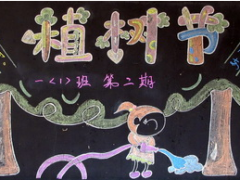 植树节
一〈1〉班 第二期